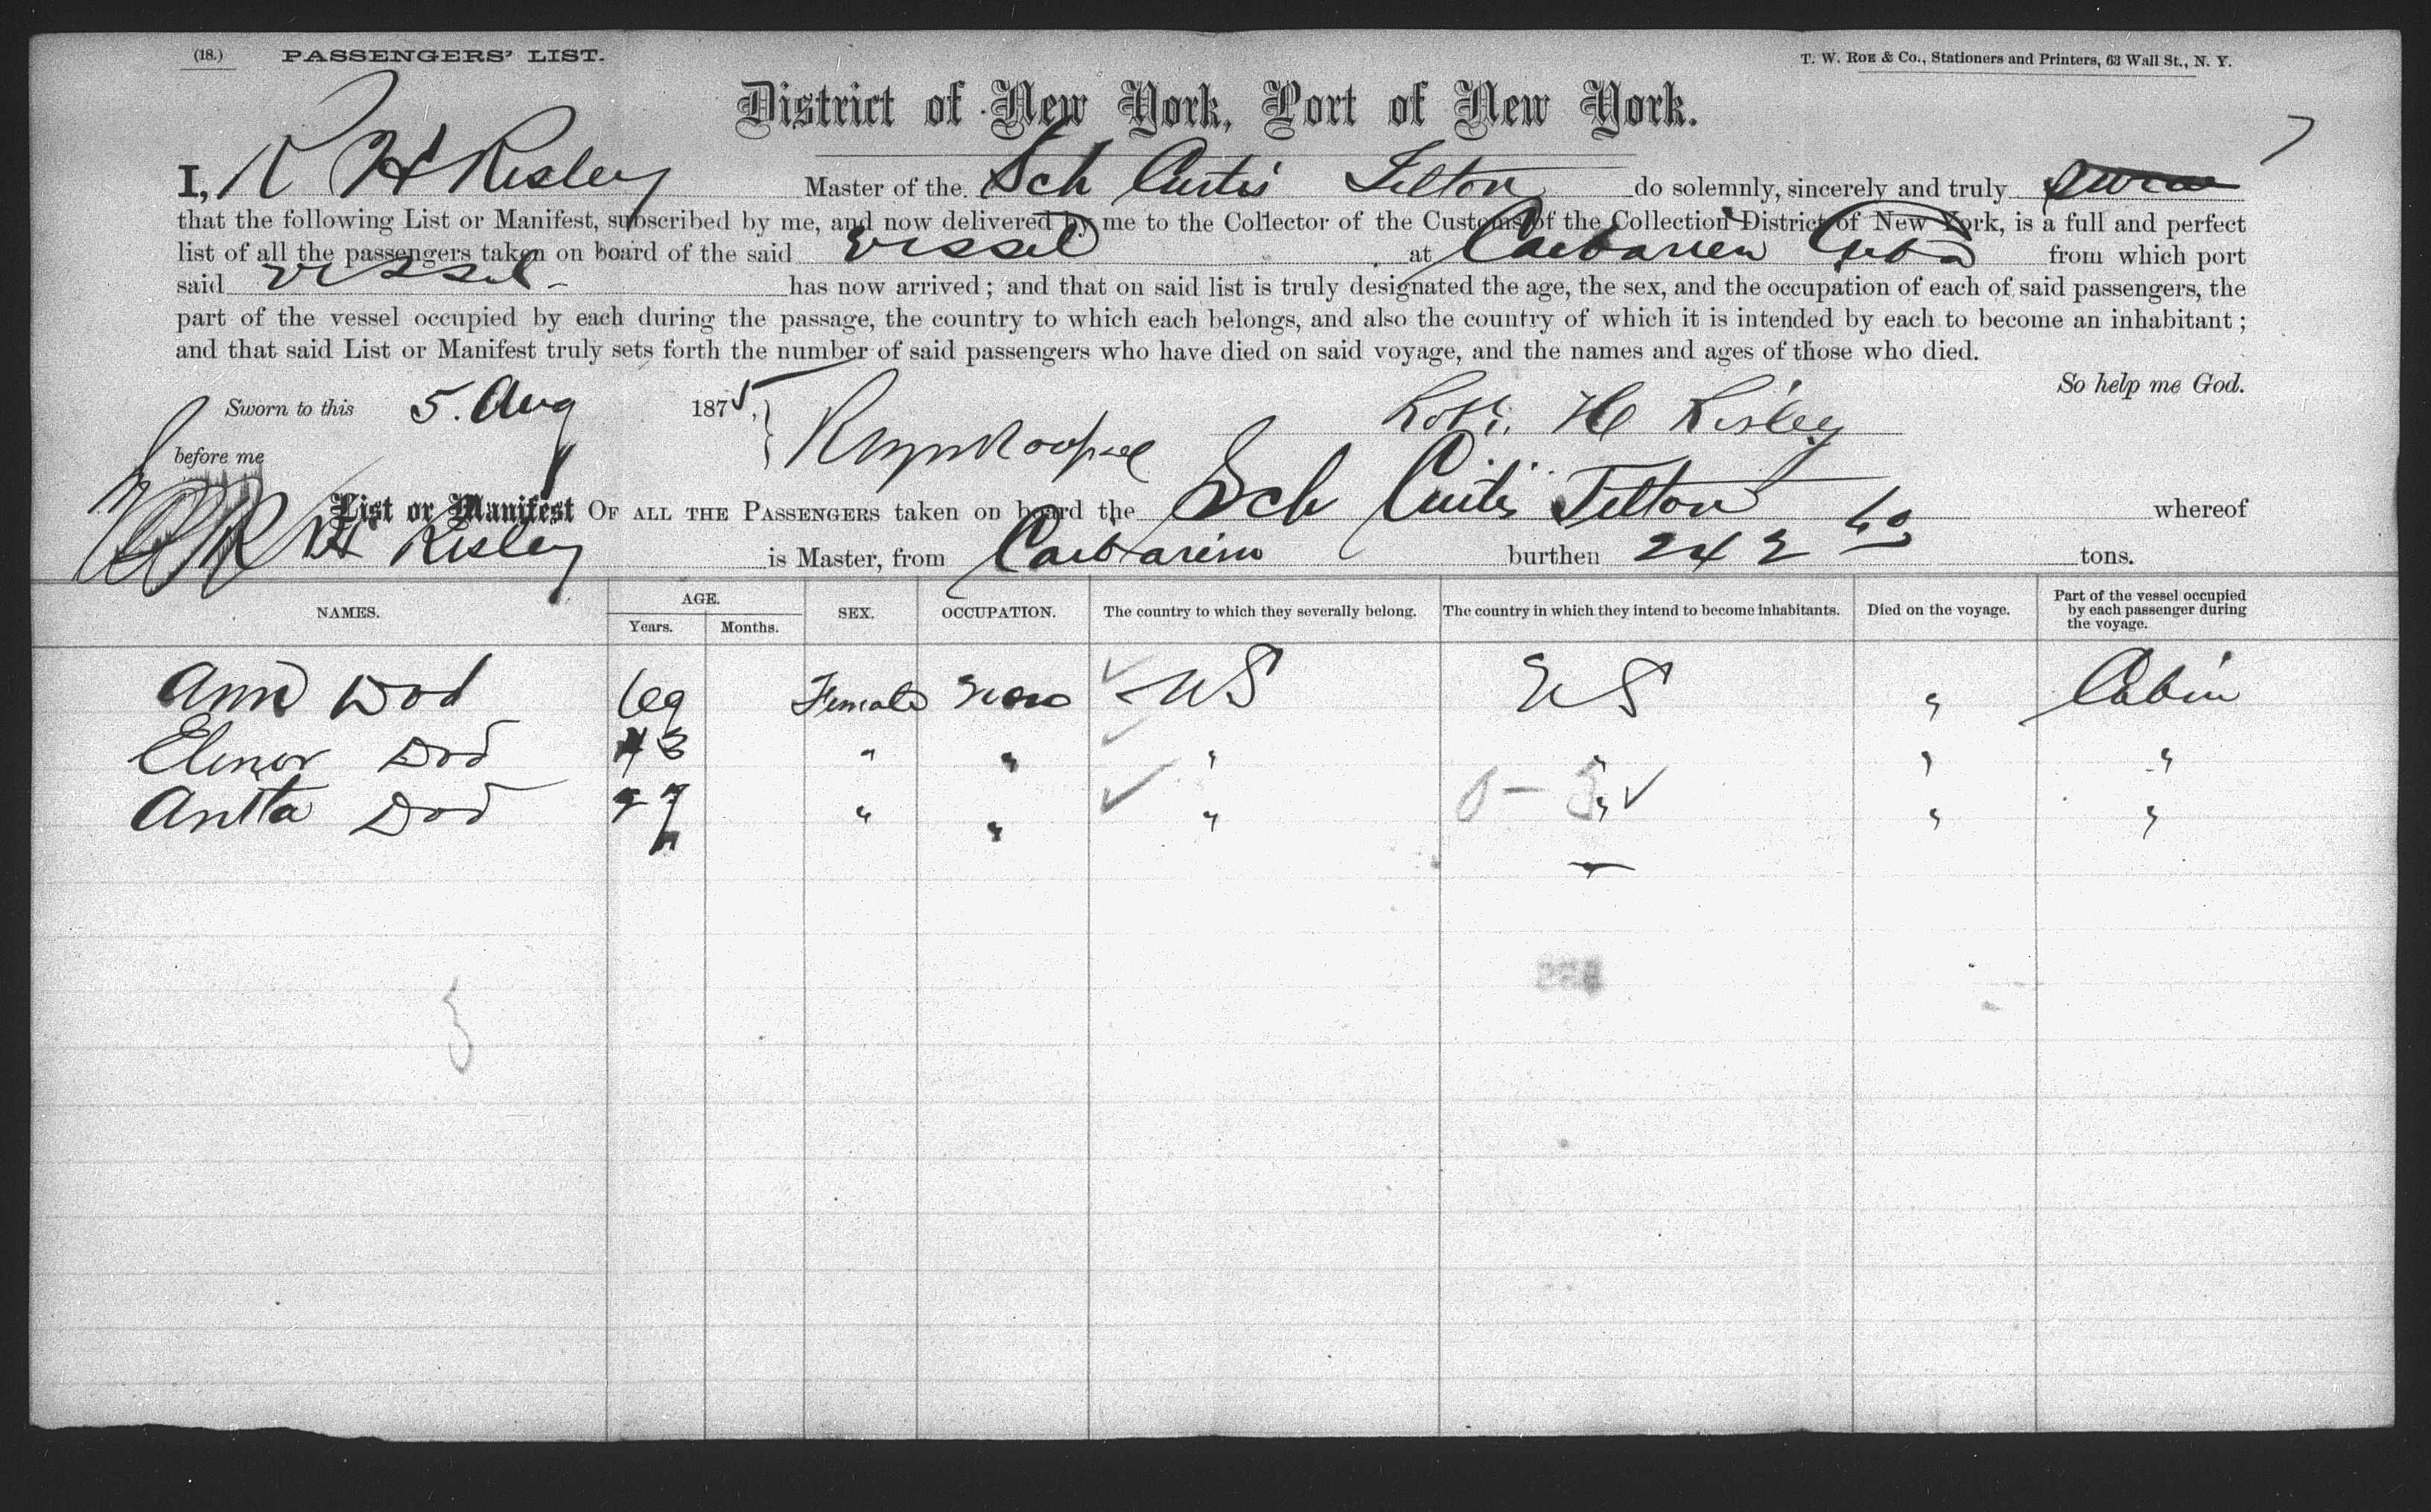 (18.) PASSENGERS' LIST.
T. W. ROE & Co., Stationers and Printers, 63 Wall St., N. Y.
District of New York, Port of New York.
I, R H Risley Master of the Sch Curtis Tilton do solemnly, sincerely and truly swear
that the following List or Manifest, subscribed by me, and now delivered by me to the Collector of the Customs of the Collection District of New York, is a full and perfect
list of all the passengers taken on board of the said vessel at Caebarien Cuba from which port
said vessel has now arrived; and that on said list is truly designated the age, the sex, and the occupation of each of said passengers, the
part of the vessel occupied by each during the passage, the country to which each belongs, and also the country of which it is intended by each to become an inhabitant;
and that said List or Manifest truly sets forth the number of said passengers who have died on said voyage, and the names and ages of those who died.
So help me God.
Sworn to this 5. Aug 1875, }
Robt. H Risley
before me
List or Manifest OF ALL THE PASSENGERS taken on board the Sch Curtis Tilton whereof
R H Risley is Master, from Caibarien burthen 242 tons.
NAMES. AGE. Years. Months. SEX. OCCUPATION. The country to which they severally belong. The country in which they intend to become inhabitants. Died on the voyage. Part of the vessel occupied by each passenger during the voyage.
Ann Dod 69 Female US US " Cabin
Elenor Dod 43 " " " " " "
Anita Dod 27 " " " " " "